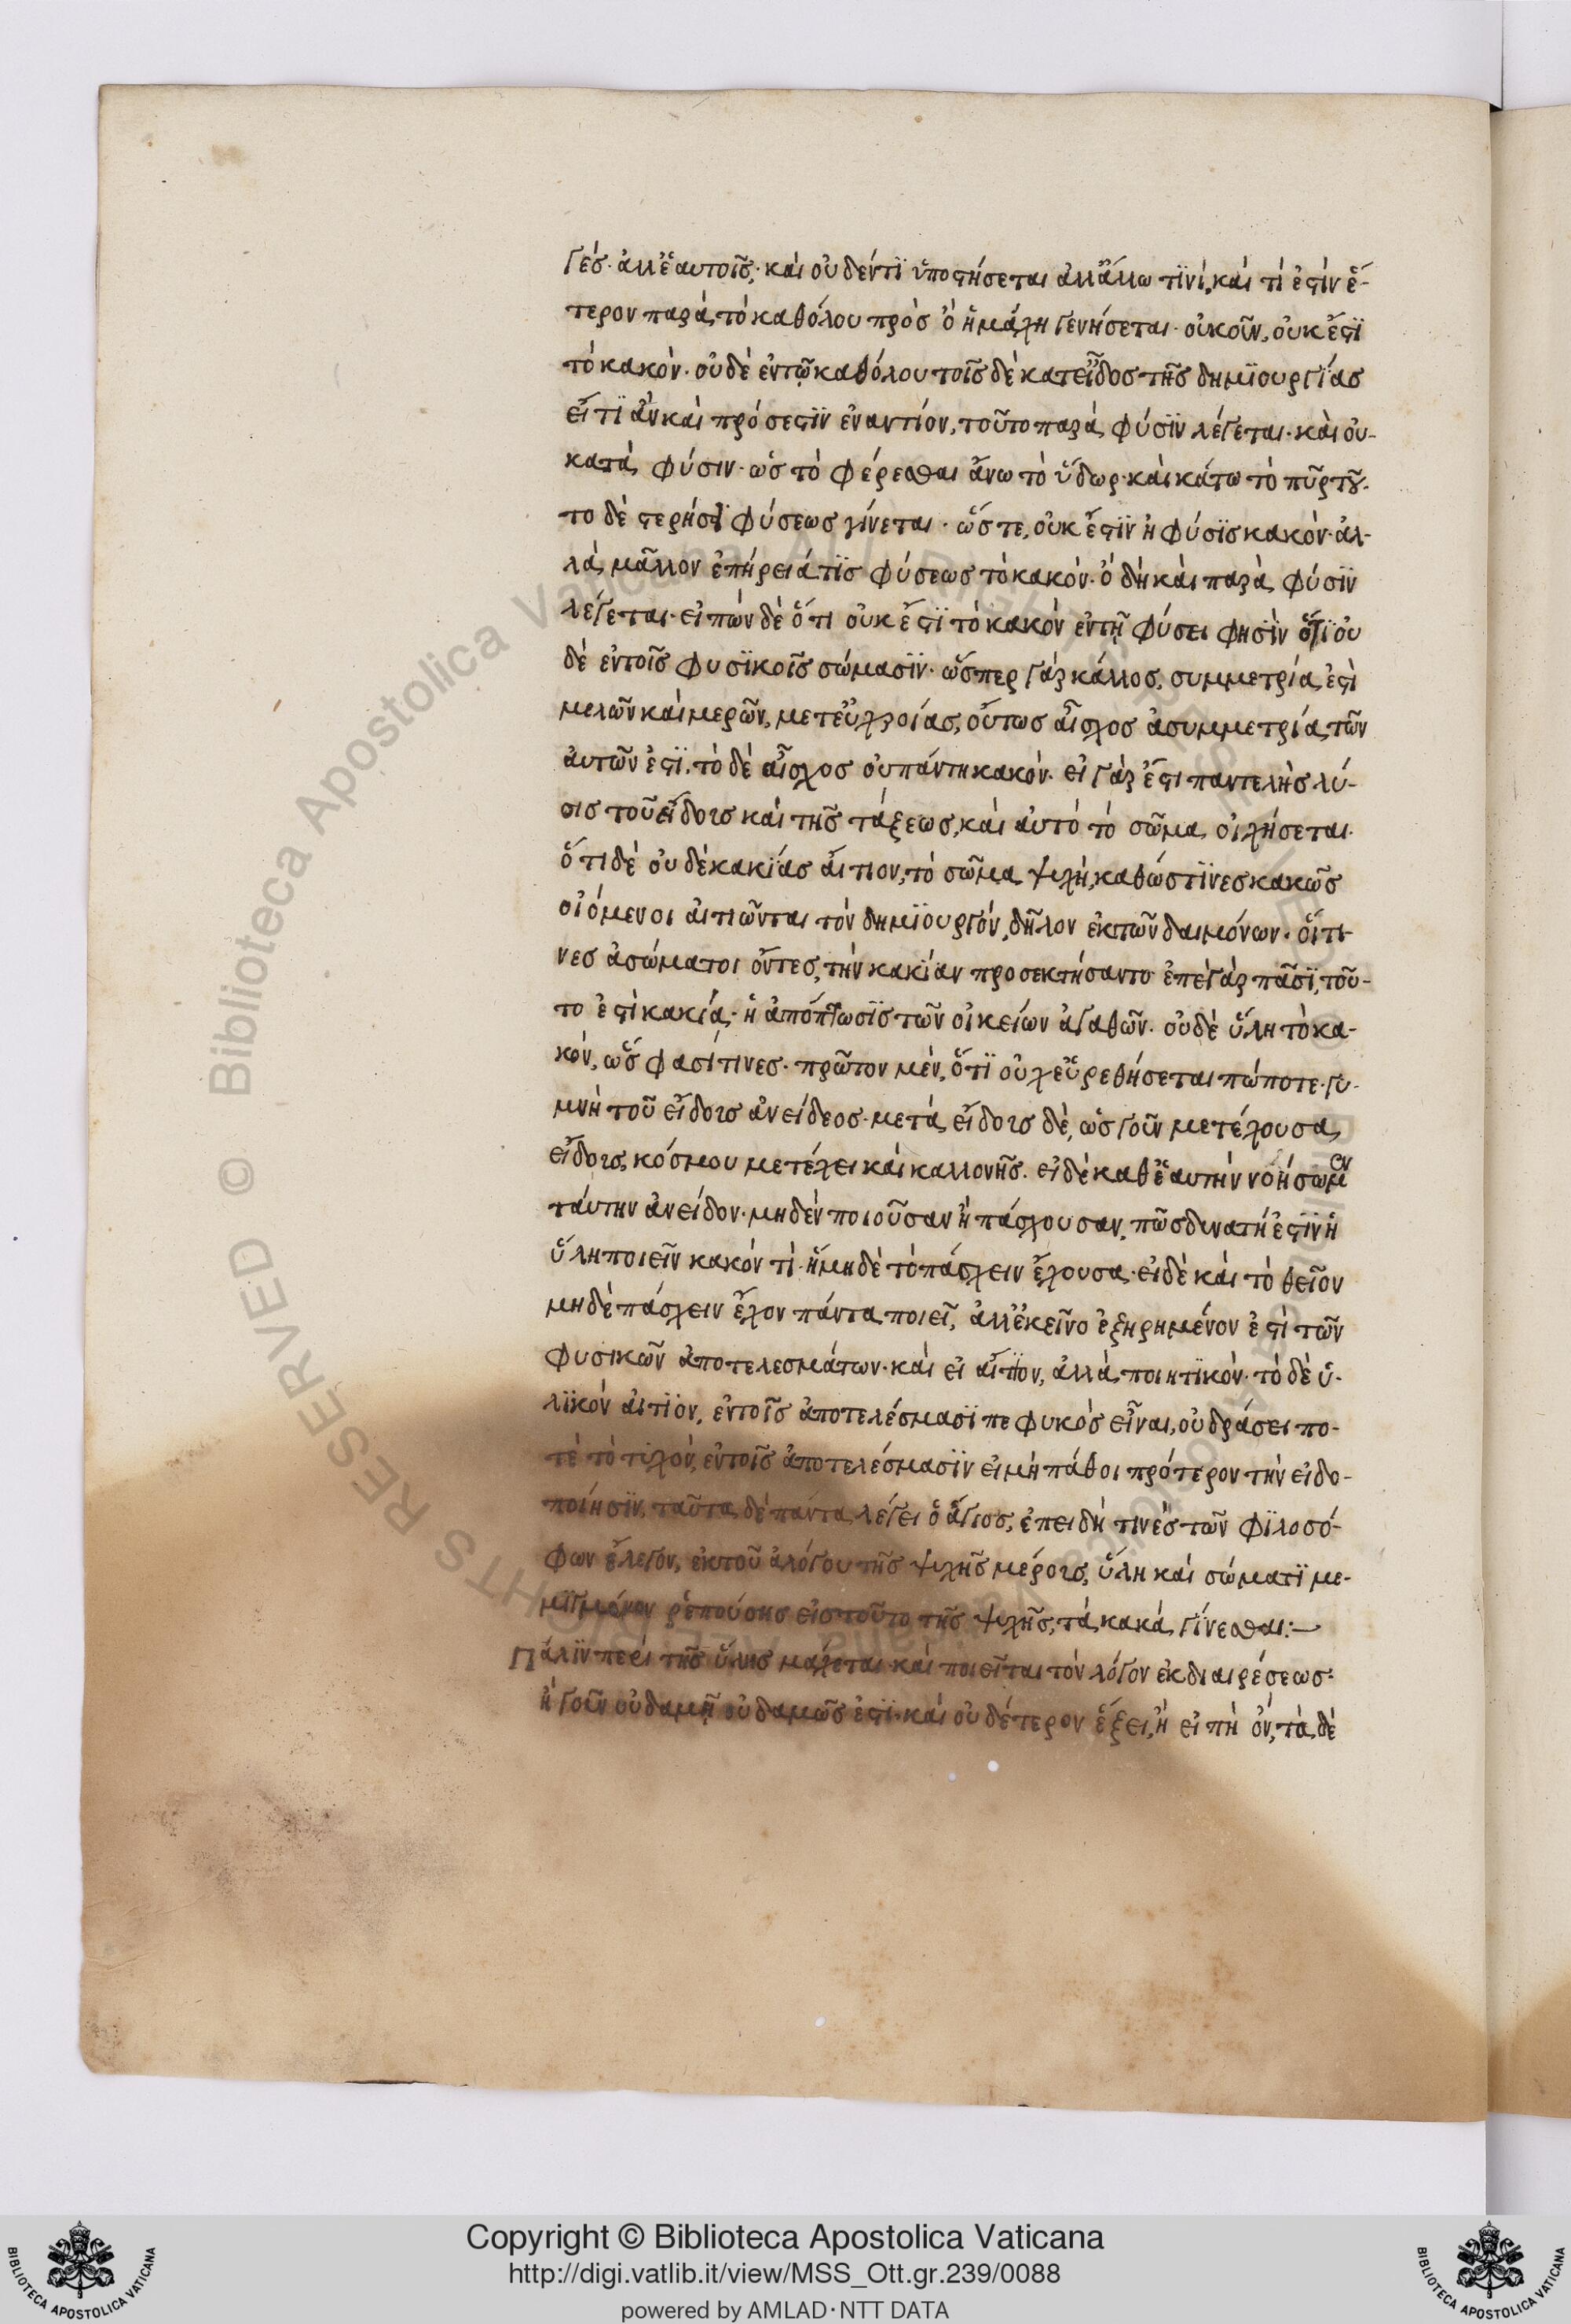 γές· ἀλλ' ἑαυτοῖς· καὶ οὐδέν τϊ ὑποστήσεται ἀλλ' ἄλλω τϊνί, καὶ τί ἐστὶν ἕ-
τερον παρὰ τὸ καθόλου πρὸς ὃ ἡ μάχη γενήσεται· οὐκοῦν, οὐκ ἔστϊ
τὸ κακόν· οὐδὲ ἐν τῷ καθόλου τοῖς δὲ κατ' εἶδος τῆς δημϊουργΐας
εἴ τϊ ἂν καὶ πρόσεστϊν ἐναντίον, τοῦτο παρὰ φύσϊν λέγεται· καὶ οὐ-
κατὰ φύσιν· ὡς τὸ φέρεσθαι ἄνω τὸ ὕδωρ· καὶ κάτω τὸ πῦρ τοῦ-
το δὲ στερήσει φύσεως γίνεται· ὥστε, οὐκ ἔστϊν ἡ φύσϊς κακόν· ἀλ-
λὰ μᾶλλον ἐπήρειά τϊς φύσεως τὸ κακόν· ὃ δὴ καὶ παρὰ φύσϊν
λέγεται· εἰπὼν δὲ ὅτι οὐκ ἔστϊ τὸ κακὸν ἐν τῇ φύσει φησὶν ὅτϊ οὐ
δὲ ἐν τοῖς φυσϊκοῖς σώμασϊν· ὥσπερ γὰρ κάλλος, συμμετρία ἐστὶ
μελῶν καὶ μερῶν, μετ' εὐχροίας, οὕτως αἶσχος ἀσυμμετρία τῶν
αὐτῶν ἐστϊ, τὸ δὲ αἶσχος οὐ πάντη κακόν· εἰ γὰρ ἔστι παντελὴς λύ-
σις τοῦ εἴδους καὶ τῆς τάξεως, καὶ αὐτὸ τὸ σῶμα οἰχήσεται·
ὅτι δὲ οὐδὲ κακΐας αἴτιον, τὸ σῶμα ψυχῆ, καθώς τϊνες κακῶς
οἰόμενοι αἰτιῶνται τὸν δημϊουργόν, δῆλον ἐκ τῶν δαιμόνων· οἵτι-
νες ἀσώματοι ὄντες, τὴν κακίαν προσεκτήσαντο ἐπεὶ γὰρ πᾶσϊ, τοῦ-
το ἐστὶ κακία· ἡ ἀπόπτωσϊς τῶν οἰκείων ἀγαθῶν· οὐδὲ ὕλη τὸ κα-
κόν, ὥς φασί τινες· πρῶτον μὲν, ὅτϊ οὐχ εὑρεθήσεται πώποτε γυ-
μνὴ τοῦ εἴδους ἀνείδεος· μετὰ εἴδους δὲ, ὡς γοῦν μετέχουσα
εἴδους, κόσμου μετέχει καὶ καλλονῆς· εἰ δὲ καθ' ἑαυτὴν νοήσωμεν
ταύτην ἀνείδον· μηδὲν ποιοῦσαν ἢ πάσχουσαν, πῶς δυνατή ἐστϊν ἡ
ὕλη ποιεῖν κακόν τὶ· ἡ μηδὲ τὸ πάσχειν ἔχουσα· εἰ δὲ καὶ τὸ θεῖον
μηδὲ πάσχειν ἔχον πάντα ποιεῖ, ἀλλ' ἐκεῖνο ἐξηρημένον ἐστὶ τῶν
φυσικῶν ἀποτελεσμάτων· καὶ εἰ αἴτϊον, ἀλλὰ ποιητϊκόν· τὸ δὲ ὑ-
λϊκὸν αἴτϊον, ἐν τοῖς ἀποτελέσμασϊ πεφυκὸς εἶναι, οὐ δράσει πο-
τὲ τὸ τυχόν, ἐν τοῖς ἀποτελέσμασϊν εἰ μὴ πάθοι πρότερον τὴν εἰδο-
ποίησϊν, ταῦτα δὲ πάντα λέγει ὁ ἅγιος, ἐπειδή τινὲς τῶν φϊλοσό-
φων ἔλεγον, ἐκ τοῦ ἀλόγου τῆς ψυχῆς μέρους, ὕλη καὶ σώματϊ με-
μϊγμένον ῥεπούσης εἰς τοῦτο τῆς ψυχῆς, τὰ κακὰ γίνεσθαι:—
Πάλϊν περὶ τῆς ὕλης μάχεται καὶ ποιεῖται τὸν λόγον ἐκ διαιρέσεως·
ἢ γοῦν οὐδαμῇ οὐδαμῶς ἐστϊ· καὶ οὐδέτερον ἕξει, ἢ εἰ πὴ ὄν, τὰ δὲ
Copyright © Biblioteca Apostolica Vaticana
http://digi.vatlib.it/view/MSS_Ott.gr.239/0088
powered by AMLAD·NTT DATA